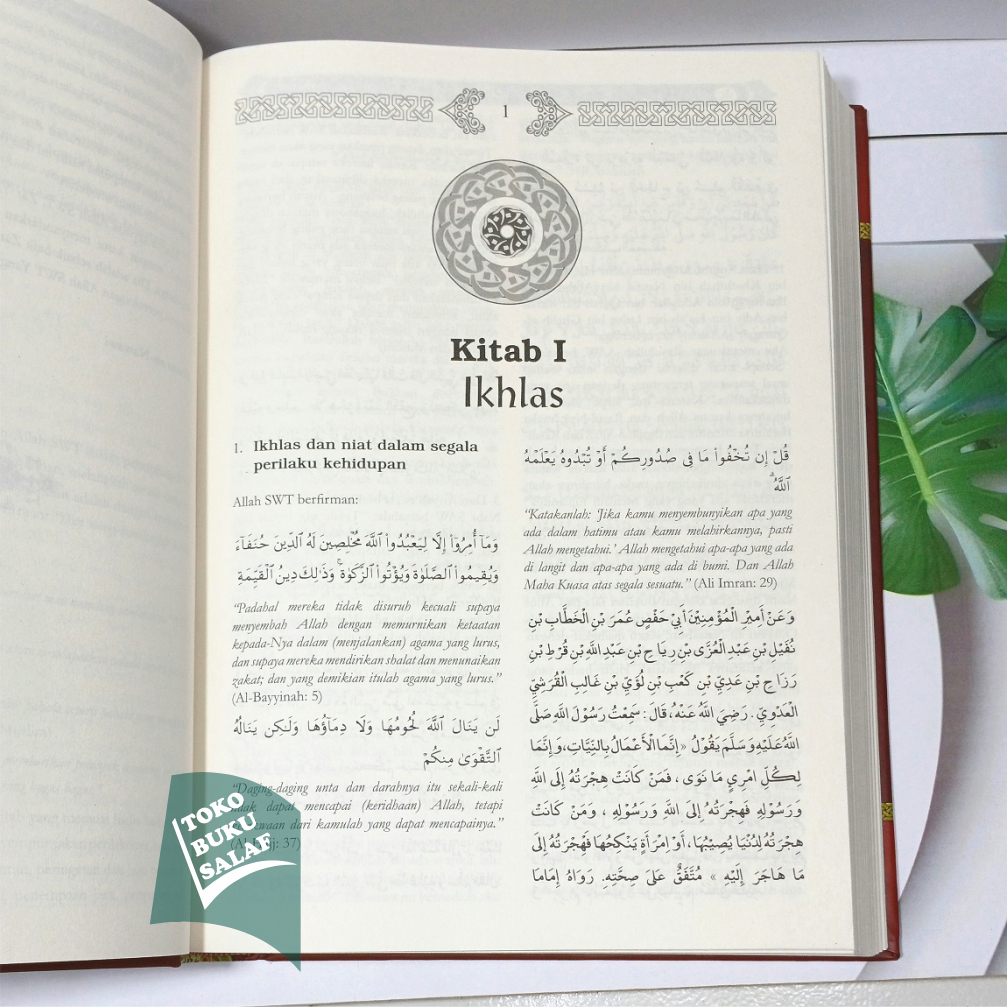 1
Kitab I
Ikhlas
1. Ikhlas dan niat dalam segala
perilaku kehidupan
Allah SWT berfirman:
وَمَآ أُمِرُوٓا۟ إِلَّا لِيَعْبُدُوا۟ ٱللَّهَ مُخْلِصِينَ لَهُ ٱلدِّينَ حُنَفَآءَ
وَيُقِيمُوا۟ ٱلصَّلَوٰةَ وَيُؤْتُوا۟ ٱلزَّكَوٰةَ ۚ وَذَٰلِكَ دِينُ ٱلْقَيِّمَةِ
“Padahal mereka tidak disuruh kecuali supaya
menyembah Allah dengan memurnikan ketaatan
kepada-Nya dalam (menjalankan) agama yang lurus,
dan supaya mereka mendirikan shalat dan menunaikan
zakat; dan yang demikian itulah agama yang lurus.”
(Al-Bayyinah: 5)
لَن يَنَالَ ٱللَّهَ لُحُومُهَا وَلَا دِمَآؤُهَا وَلَٰكِن يَنَالُهُ
ٱلتَّقْوَىٰ مِنكُمْ
“Daging-daging unta dan darahnya itu sekali-kali
dapat mencapai (keridhaan) Allah, tetapi
dari kamulah yang dapat mencapainya.”
37)
قُلْ إِن تُخْفُوا۟ مَا فِى صُدُورِكُمْ أَوْ تُبْدُوهُ يَعْلَمْهُ
ٱللَّهُ ۗ
“Katakanlah: ‘Jika kamu menyembunyikan apa yang
ada dalam hatimu atau kamu melahirkannya, pasti
Allah mengetahui.’ Allah mengetahui apa-apa yang ada
di langit dan apa-apa yang ada di bumi. Dan Allah
Maha Kuasa atas segala sesuatu.” (Ali Imran: 29)
وَعَنْ أَمِيْرِ الْمُؤْمِنِيْنَ أَبِيْ حَفْصٍ عُمَرَ بْنِ الْخَطَّابِ بْنِ
نُفَيْلِ بْنِ عَبْدِ الْعُزَّى بْنِ رِيَاحِ بْنِ عَبْدِ اللهِ بْنِ قُرْطِ بْنِ
رَزَاحِ بْنِ عَدِيِّ بْنِ كَعْبِ بْنِ لُؤَيِّ بْنِ غَالِبِ الْقُرَشِيِّ
الْعَدَوِيِّ. رَضِيَ اللهُ عَنْهُ، قَالَ: سَمِعْتُ رَسُوْلَ اللهِ صَلَّى
اللهُ عَلَيْهِ وَسَلَّمَ يَقُوْلُ «إِنَّمَا الْأَعْمَالُ بِالنِّيَّاتِ، وَإِنَّمَا
لِكُلِّ امْرِئٍ مَا نَوَى، فَمَنْ كَانَتْ هِجْرَتُهُ إِلَى اللهِ
وَرَسُوْلِهِ فَهِجْرَتُهُ إِلَى اللهِ وَرَسُوْلِهِ، وَمَنْ كَانَتْ
هِجْرَتُهُ لِدُنْيَا يُصِيْبُهَا، أَوْ امْرَأَةٍ يَنْكِحُهَا فَهِجْرَتُهُ إِلَى
مَا هَاجَرَ إِلَيْهِ» مُتَّفَقٌ عَلَى صِحَّتِهِ. رَوَاهُ إِمَامَا
TOKO
BUKU
SALAF